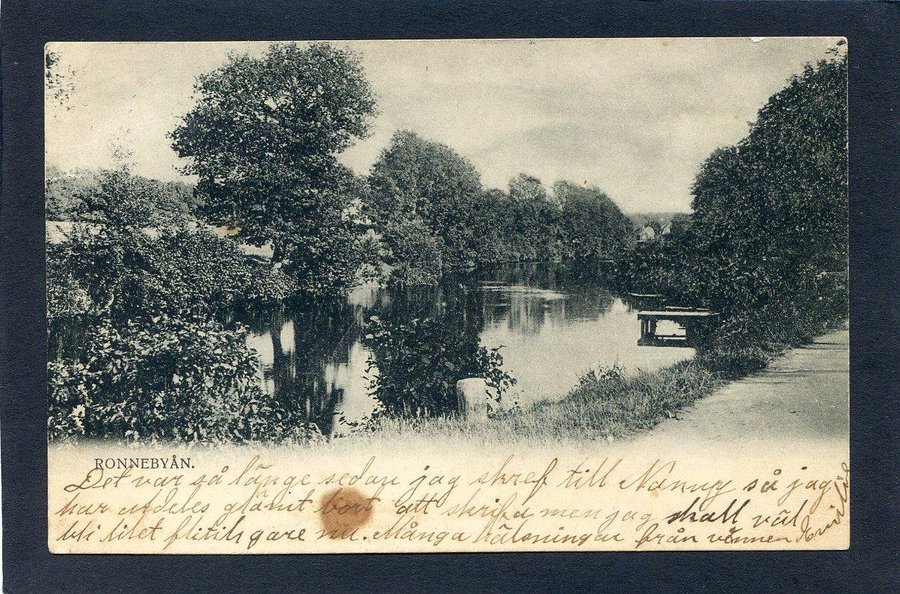 RONNEBYÅN.
Det var så länge sedan jag skref till Nanny så jag
har aldeles glömt bort att skrifa men jag skall väl
bli litet flitigare nu. Många hälsningar från vännen